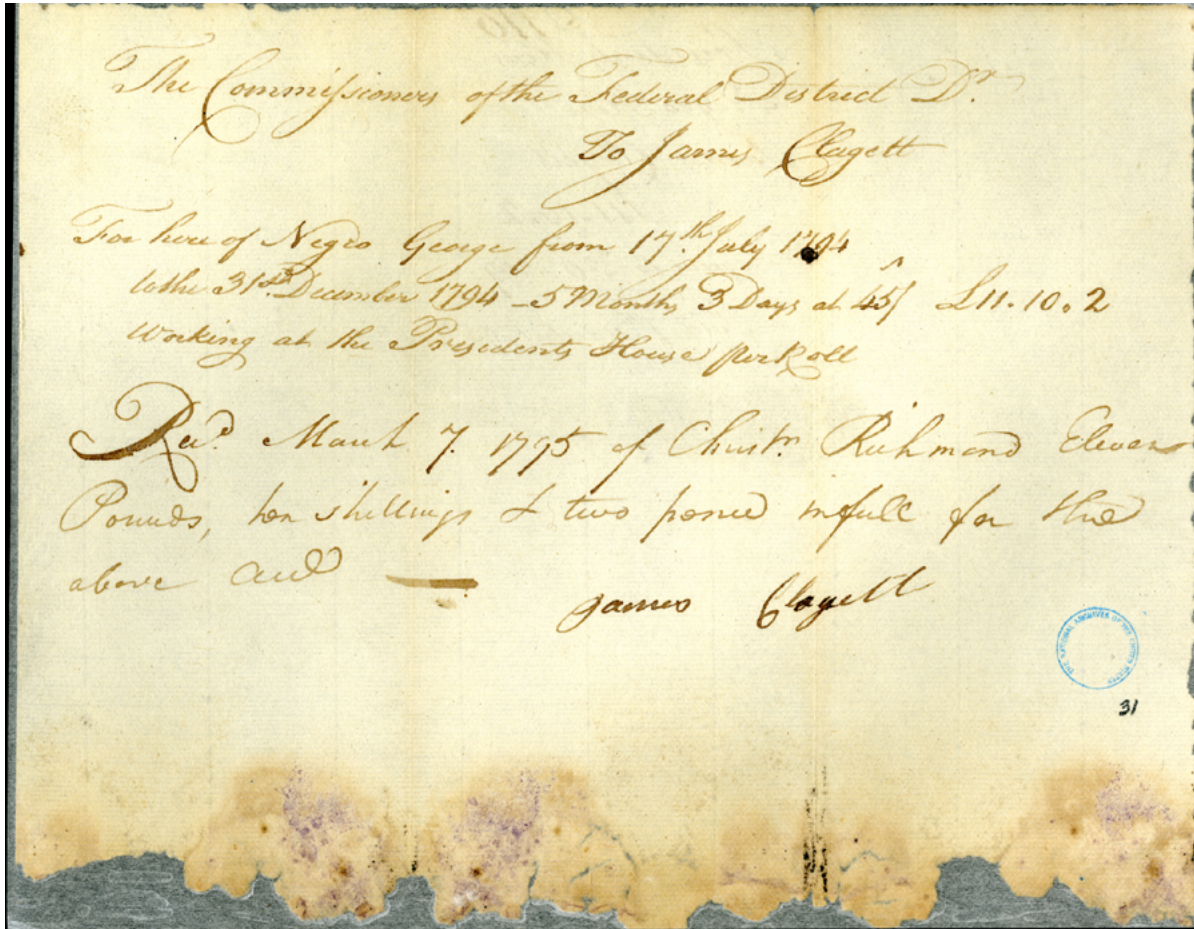 The Commissioners of the Federal District Dr.
To James Clagett
For hire of Negro George from 17th July 1794
to the 31st December 1794 - 5 Months 3 Days at 45/ £11.10.2
Working at the Presedents House per Roll
Recd. March 7. 1795 of Christr. Richmond Eleven
Pounds, ten shillings & two pence in full for the
above acct
James Clagett
THE NATIONAL ARCHIVES OF THE UNITED STATES
31